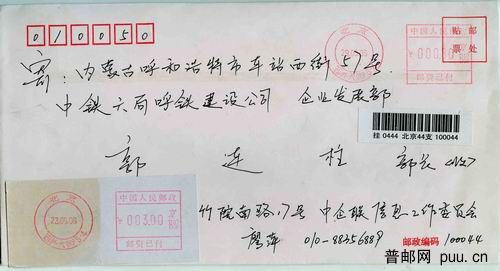 010050
北京
中国人民邮政
00300
京
邮资已付
贴邮票处
寄：内蒙古呼和浩特市车站西街57号
中铁六局呼铁建设公司 企业发展部
挂 0444 北京44支 100044
郭连柱 部长<收>
北京
23.05.06
中国人民邮政
00300
京
邮资已付
竹院南路17号 中企联信息工作委员会
廖萍 010-88356889
邮政编码 100044
普邮网 puu.cn